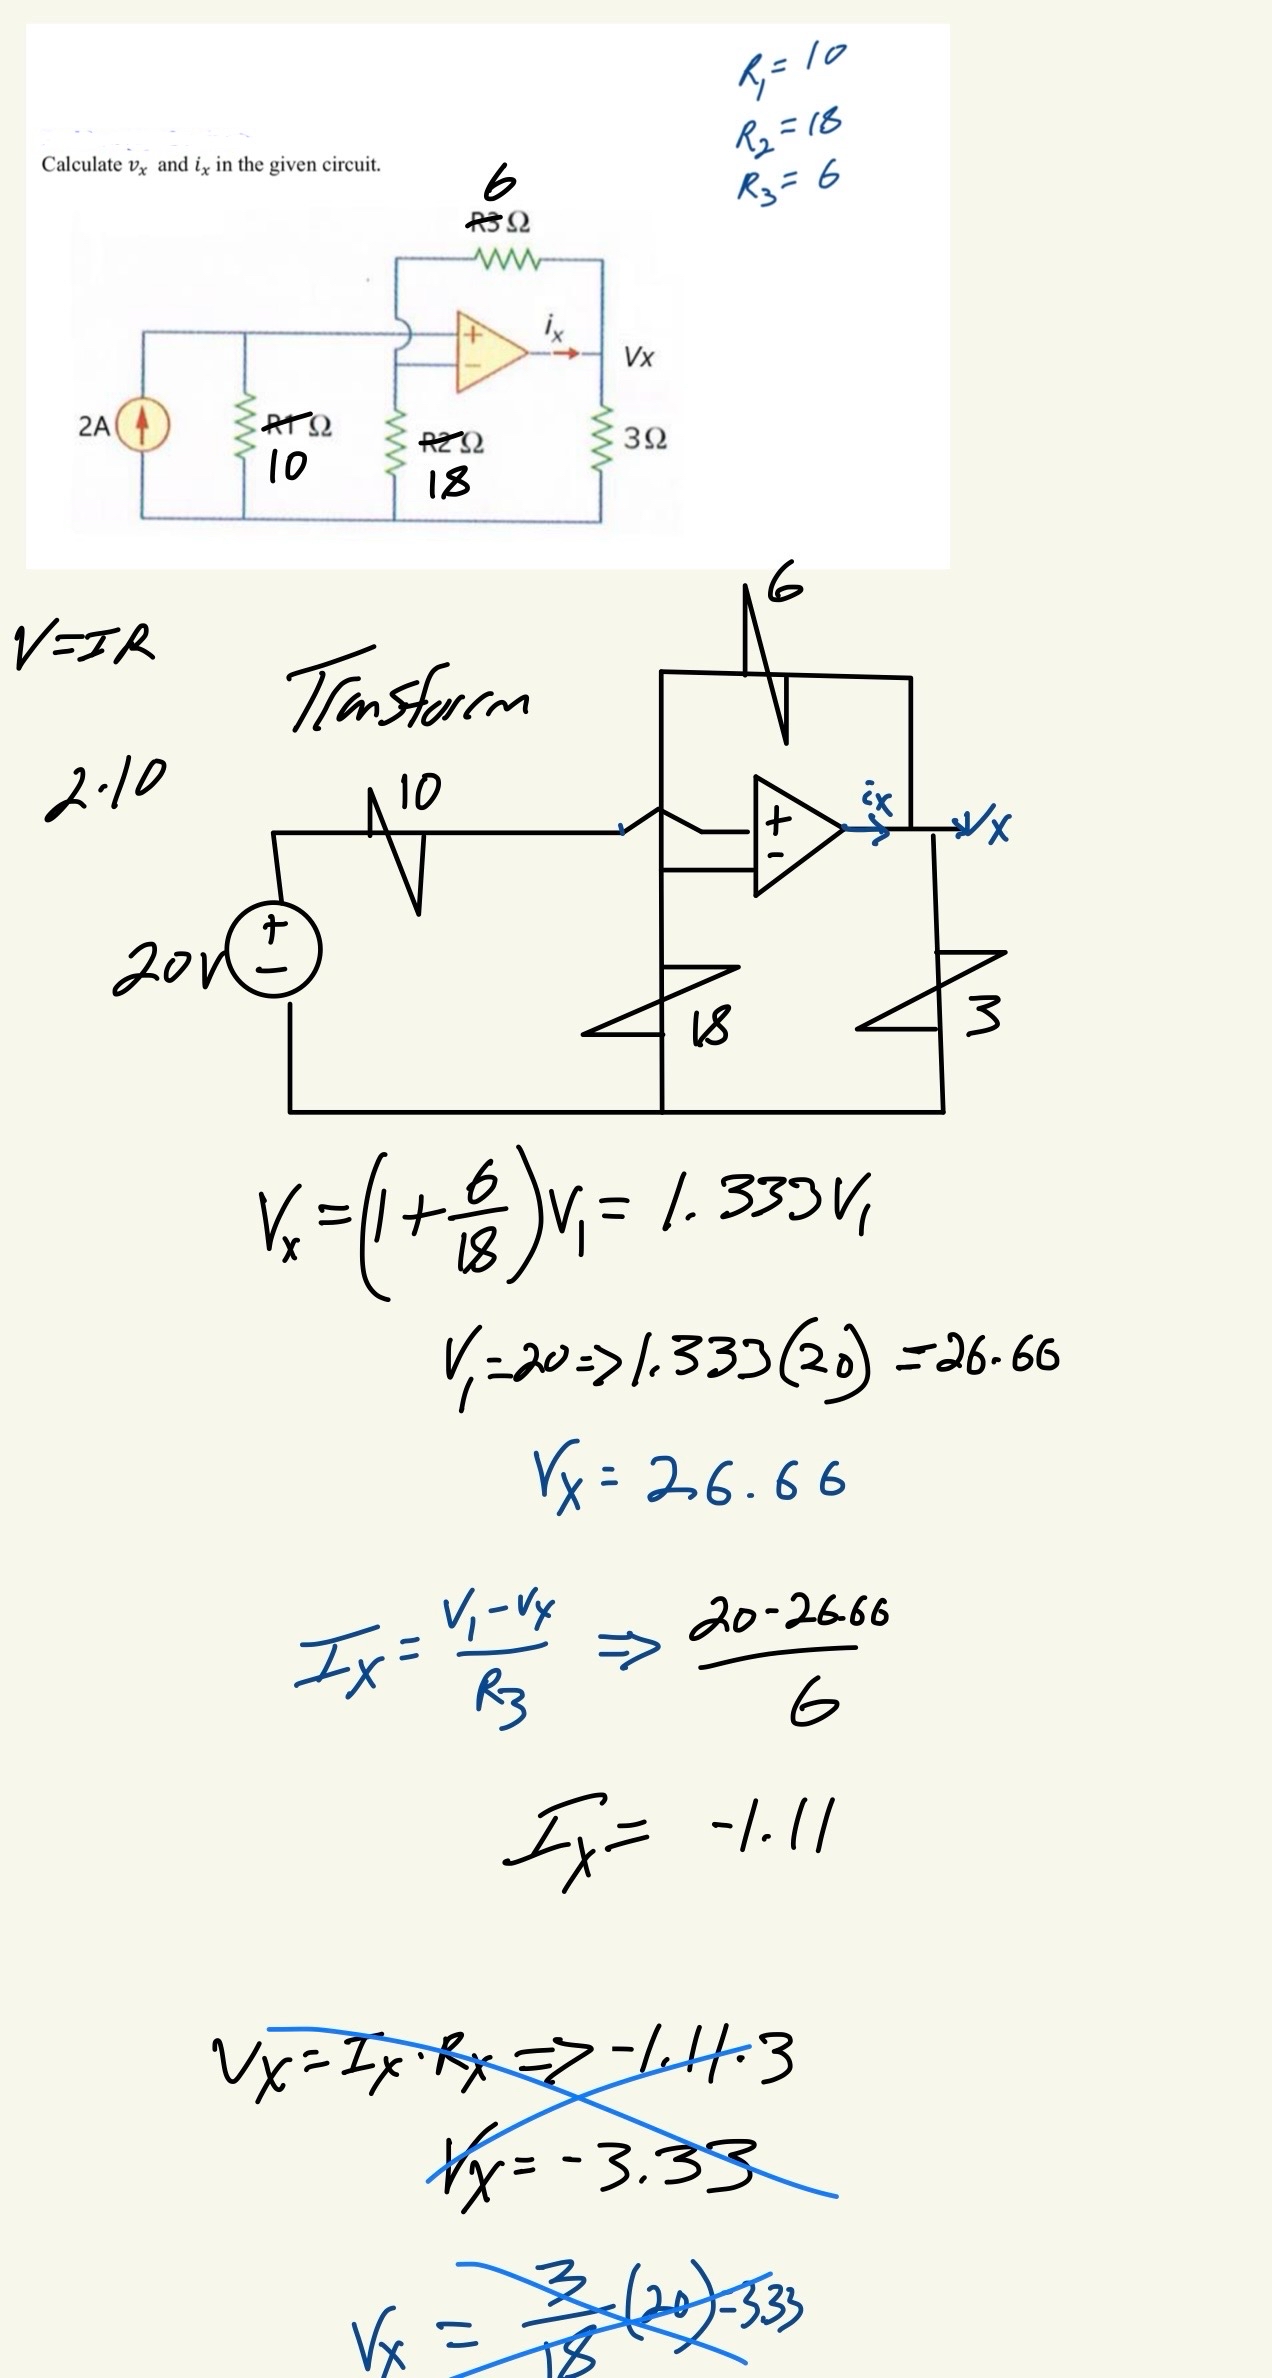 R₁ = 10
R₂ = 18
R₃ = 6
Calculate vₓ and iₓ in the given circuit.
6
R3 Ω
iₓ
+
−
Vx
2A
R1 Ω
10
R2 Ω
18
3Ω
V=IR
Transform
6
2·10
10
+
-
ix
Vx
20V
+
−
18
3
Vx = (1 + 6/18) V₁ = 1.333V₁
V₁ = 20 => 1.333(20) = 26.66
Vx = 26.66
Ix = V₁ - Vx / R3 => 20 - 26.66 / 6
Ix = -1.11
Vx = Ix · Rx => -1.11 · 3
Vx = -3.33
Vx = 3/18 (20) = 333